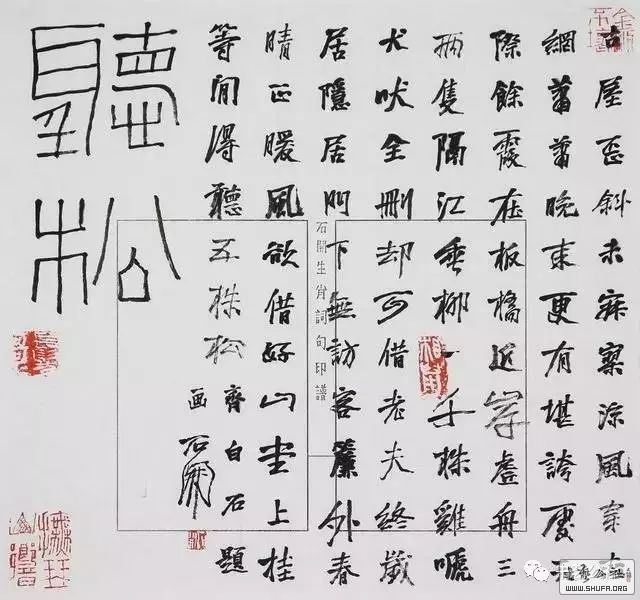 古屋歪斜未寂寞涼風穿
網晚來更有堪誇處天
際餘霞在板橋近岸虛舟三
兩隻隔江垂柳一千株雞嗁
犬吠全刪却可借老夫終歲
居隱居門下無訪客簾外春
晴正暖風欲借好山堂上挂
等閒得聽五株松
齊白石題
画 石開
聽松
石開生肖詞句印譜
WWW.SHUFA.ORG